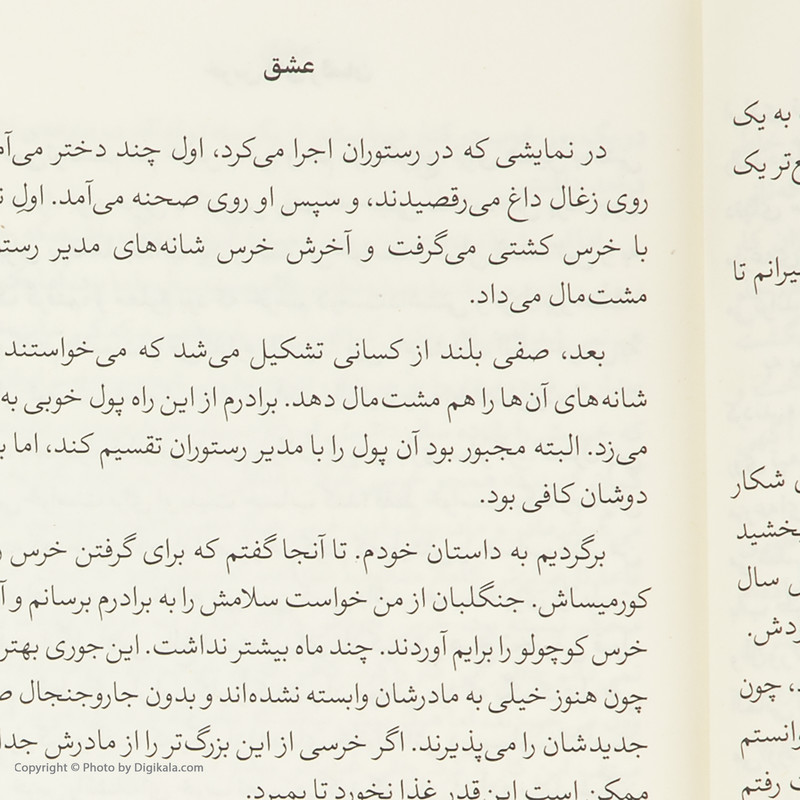 عشق
در نمایشی که در رستوران اجرا می‌کرد، اول چند دختر
روی زغال داغ می‌رقصیدند، و سپس او روی صحنه می‌آمد. اولِ
با خرس کشتی می‌گرفت و آخرش خرس شانه‌های مدیر
مشت‌مال می‌داد.
بعد، صفی بلند از کسانی تشکیل می‌شد که می‌خواستند
شانه‌های آن‌ها را هم مشت‌مال دهد. برادرم از این راه پول خوبی به
می‌زد. البته مجبور بود آن پول را با مدیر رستوران تقسیم کند، اما
دوشان کافی بود.
برگردیم به داستان خودم. تا آنجا گفتم که برای گرفتن خرس
کورمیساش. جنگلبان از من خواست سلامش را به برادرم برسانم و
خرس کوچولو را برایم آوردند. چند ماه بیشتر نداشت. این‌جوری بهتر
چون هنوز خیلی به مادرشان وابسته نشده‌اند و بدون جاروجنجال
جدیدشان را می‌پذیرند. اگر خرسی از این بزرگ‌تر را از مادرش
ممکن است این‌قدر غذا نخورد تا بمیرد.
به یک
یک
تا
شکار
سال
چون
رفتم
Copyright © Photo by Digikala.com